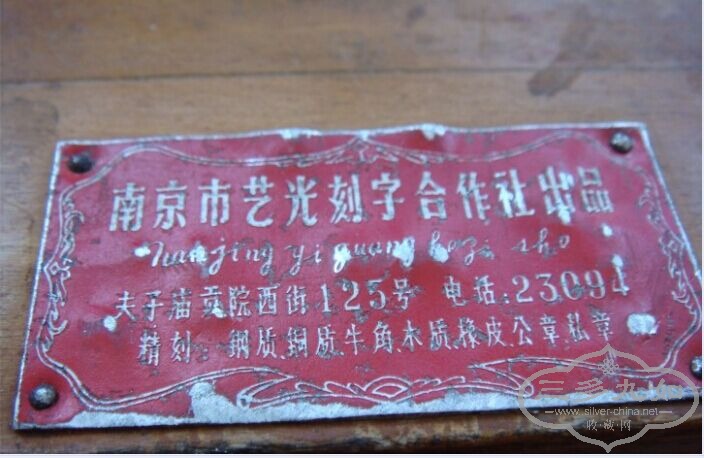 南京市艺光刻字合作社出品
nanjing yi guang kezi sho
夫子庙贡院西街125号 电话:23094
精刻:钢质铜质牛角木质橡皮公章私章
www.silver-china.net
收藏网